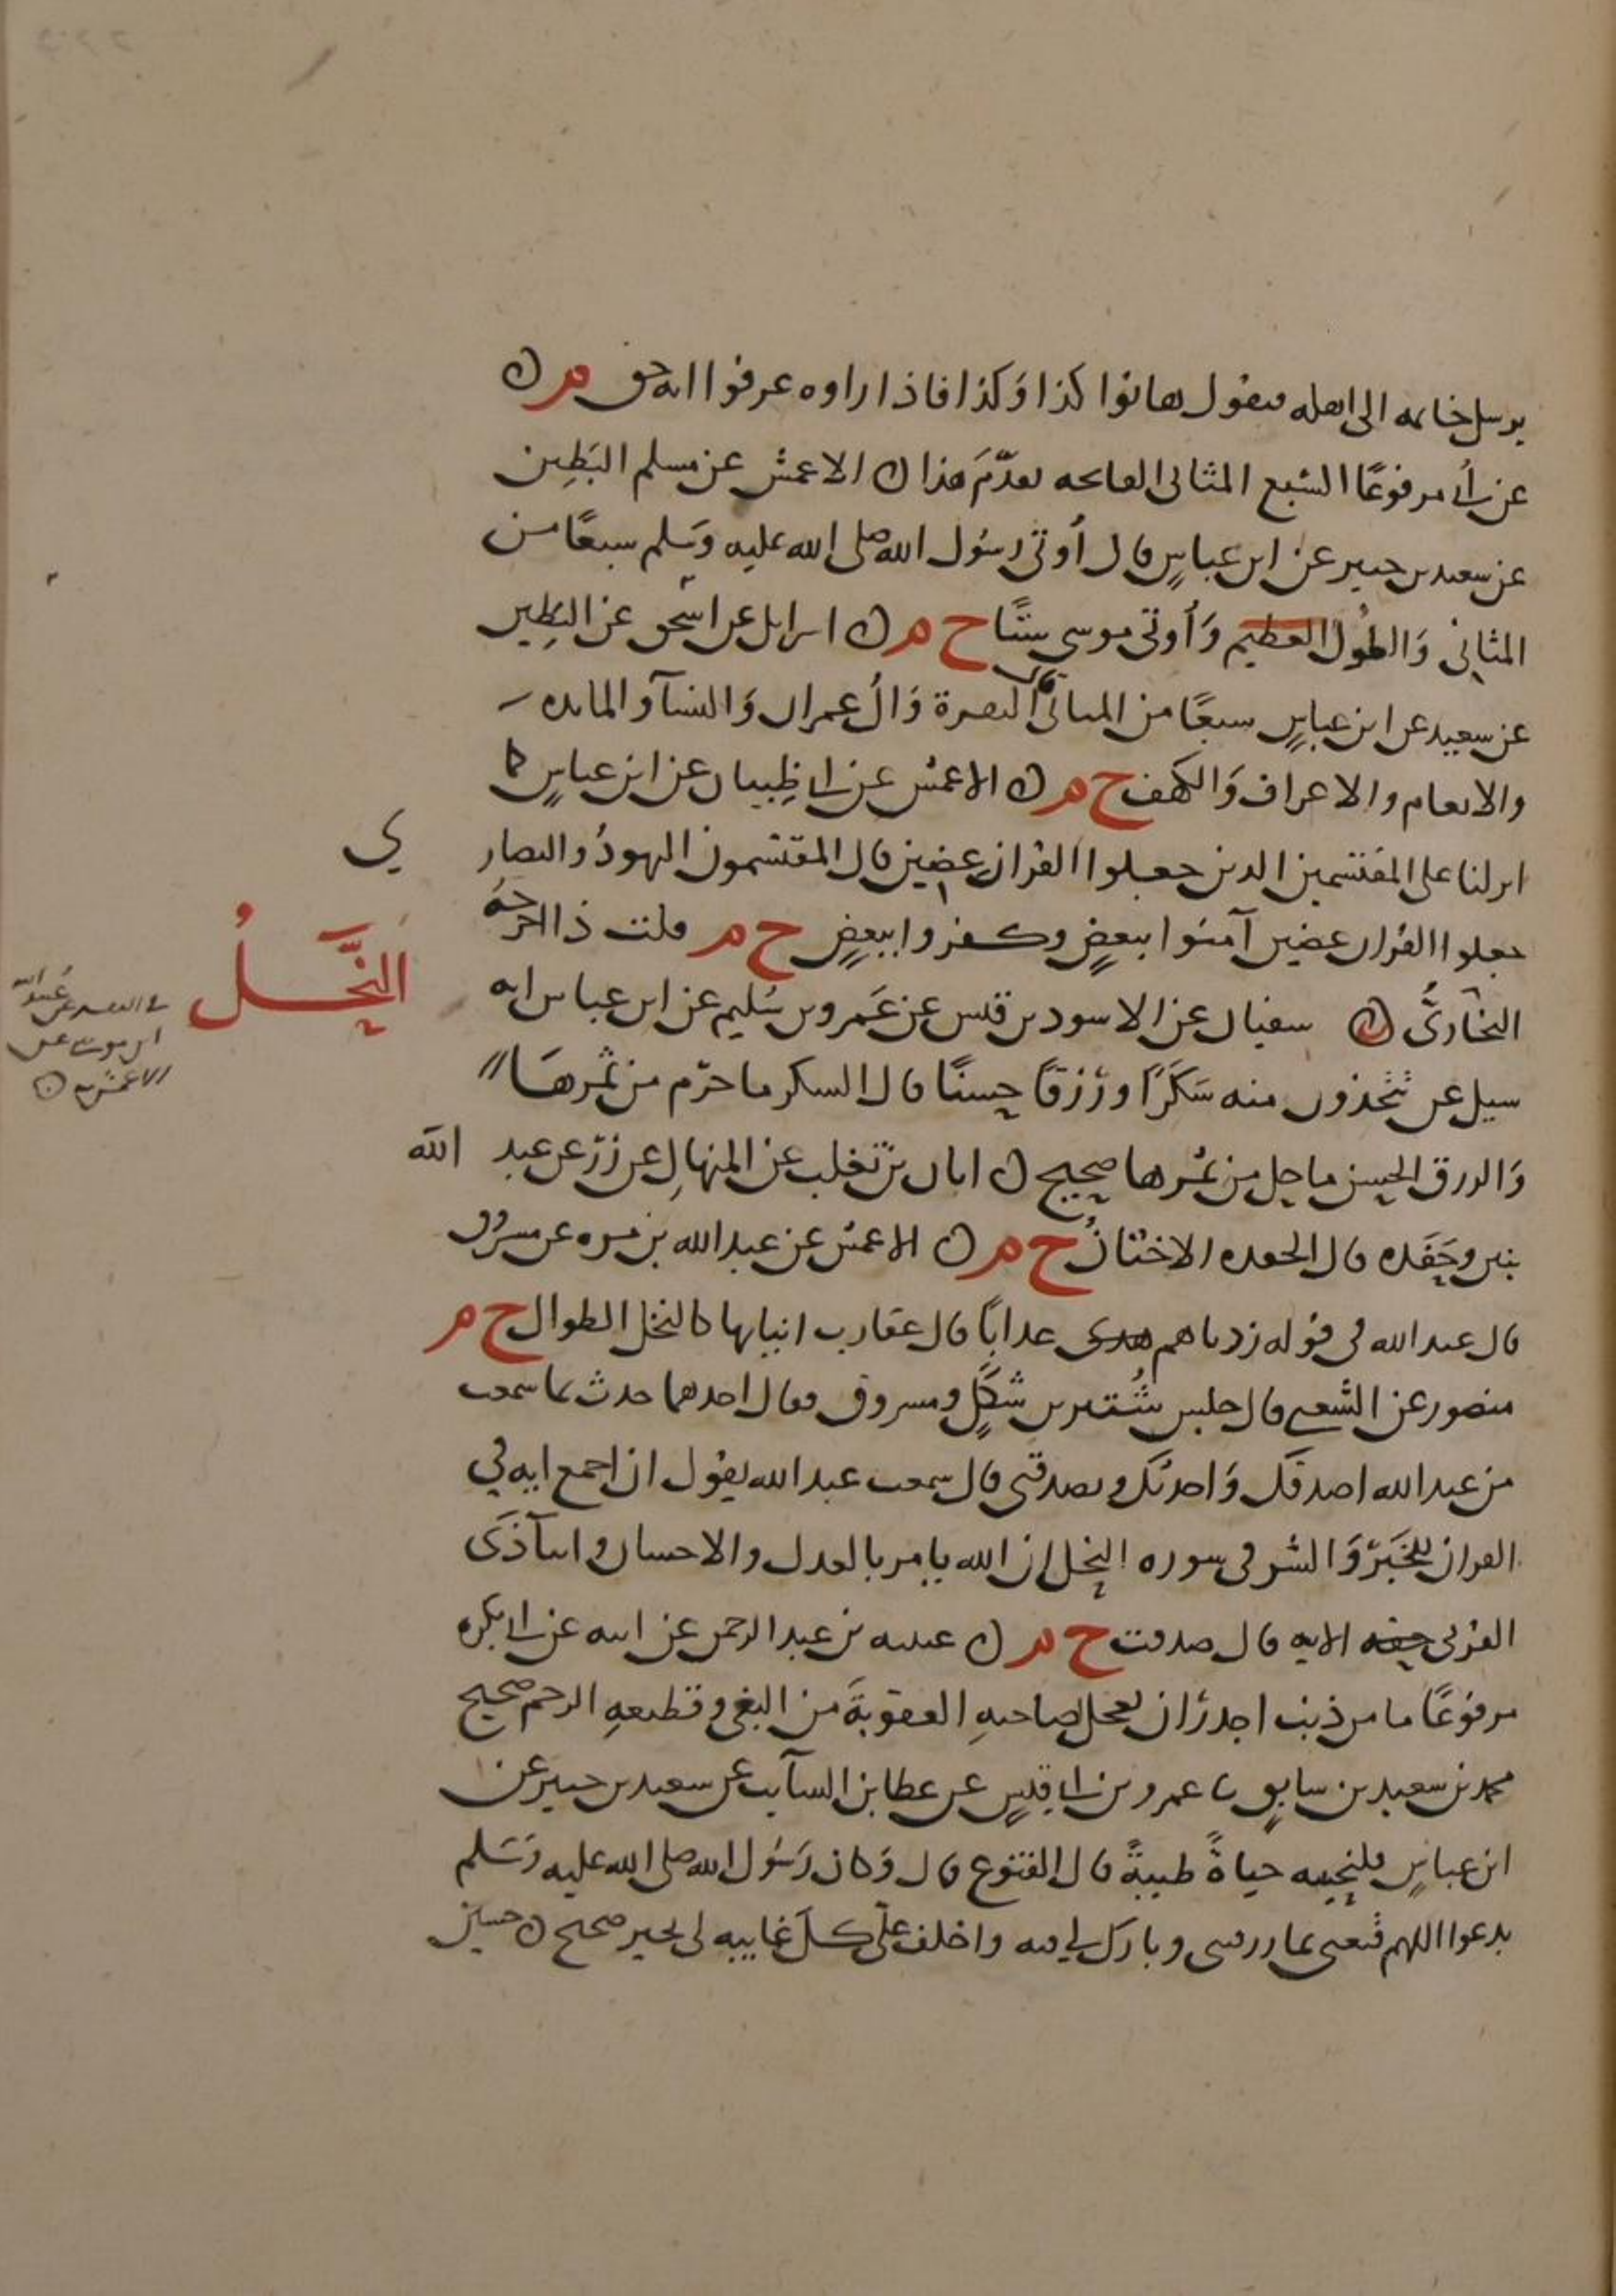 يرسل خاتمه الى اهله فيقول هاتوا كذا وَكذا فاذا راوه عرفوا انه حق م ن
عن أبي مرفوعًا السّبع المثاني الفاتحه تقدّمَ هذا ن الاعمش عن مسلم البَطِين
عن سعيد بن جبير عن ابن عباسٍ قال أُوتي رسُول الله صلى الله عليه وَسَلم سبعًا من
المثاني وَالطُول العظيم وَأُوتي موسى ستًّا خ م ن اسرايل عن اسحق عن البطين
عن سعيد عن ابن عباسٍ سبعًا من المثاني قال البقرة وَالُ عمران وَالنسآ والمايده
والانعام والاعراف وَالكهف خ م ن الاعمش عن ابي ظِبيان عن ابن عباسٍ كما
انزلنا على المقتسمين الذين جعلوا القران عضين قال المقتسمون اليهودُ والنصاري
جعلوا القران عضين آمنوا ببعضٍ وكفروا ببعضٍ خ م قلت ذا اخرجهُ
البخاريُّ ن سفيان عن الاسود بن قيس عن عَمرو بن سُليم عن ابن عباس انه
النَّحَلُ
سيل عن تتخذون منه سَكَرًا ورزقًا حسنًا قال السكر ما حرّم من ثمرهَا
وَالرزق الحسن ما حل من ثمرها صحيح ن ابان بن تغلب عن المنهالِ عن زرّ عن عبد الله
بنين وحَفَده قال الحفده الاختانُ خ م ن الاعمش عن عبد الله بن مره عن مسروق
قال عبد الله في قوله زدناهم عذابًا قال عقارب انيابها كالنخل الطوال خ م
منصور عن الشعبي قال جلس شُتير بن شكلٍ ومسروق فقال احدهما حدث بما سمعت
من عبد الله اصدقك وَاحدثك وتصدقني قال سمعت عبد الله يقول ان اجمع ايه في
القران للخَير وَالشر في سوره النحل ان الله يامر بالعدل والاحسان وايتآ ذي
القربى الايه قال صدقت خ م ن عيينه بن عبد الرحمن عن ابيه عن ابي بكره
مرفوعًا ما من ذنب اجدر ان يعجل لصاحبهِ العقوبةَ من البغي وقطيعهِ الرحم صحيح
محمد بن سعيد بن سابق نا عمرو بن ابي قيسٍ عن عطا بن السآيب عن سعيد بن جبير عن
ابن عباسٍ فلنحيينه حياةً طيبةً قال القنوع قال وَكان رَسُول الله صلى الله عليه وَسَلم
يدعوا اللهم قنعني بما رزقتني وبارك لي فيه واخلف علَى كل غايبه لي بخير صحيح ن حسين